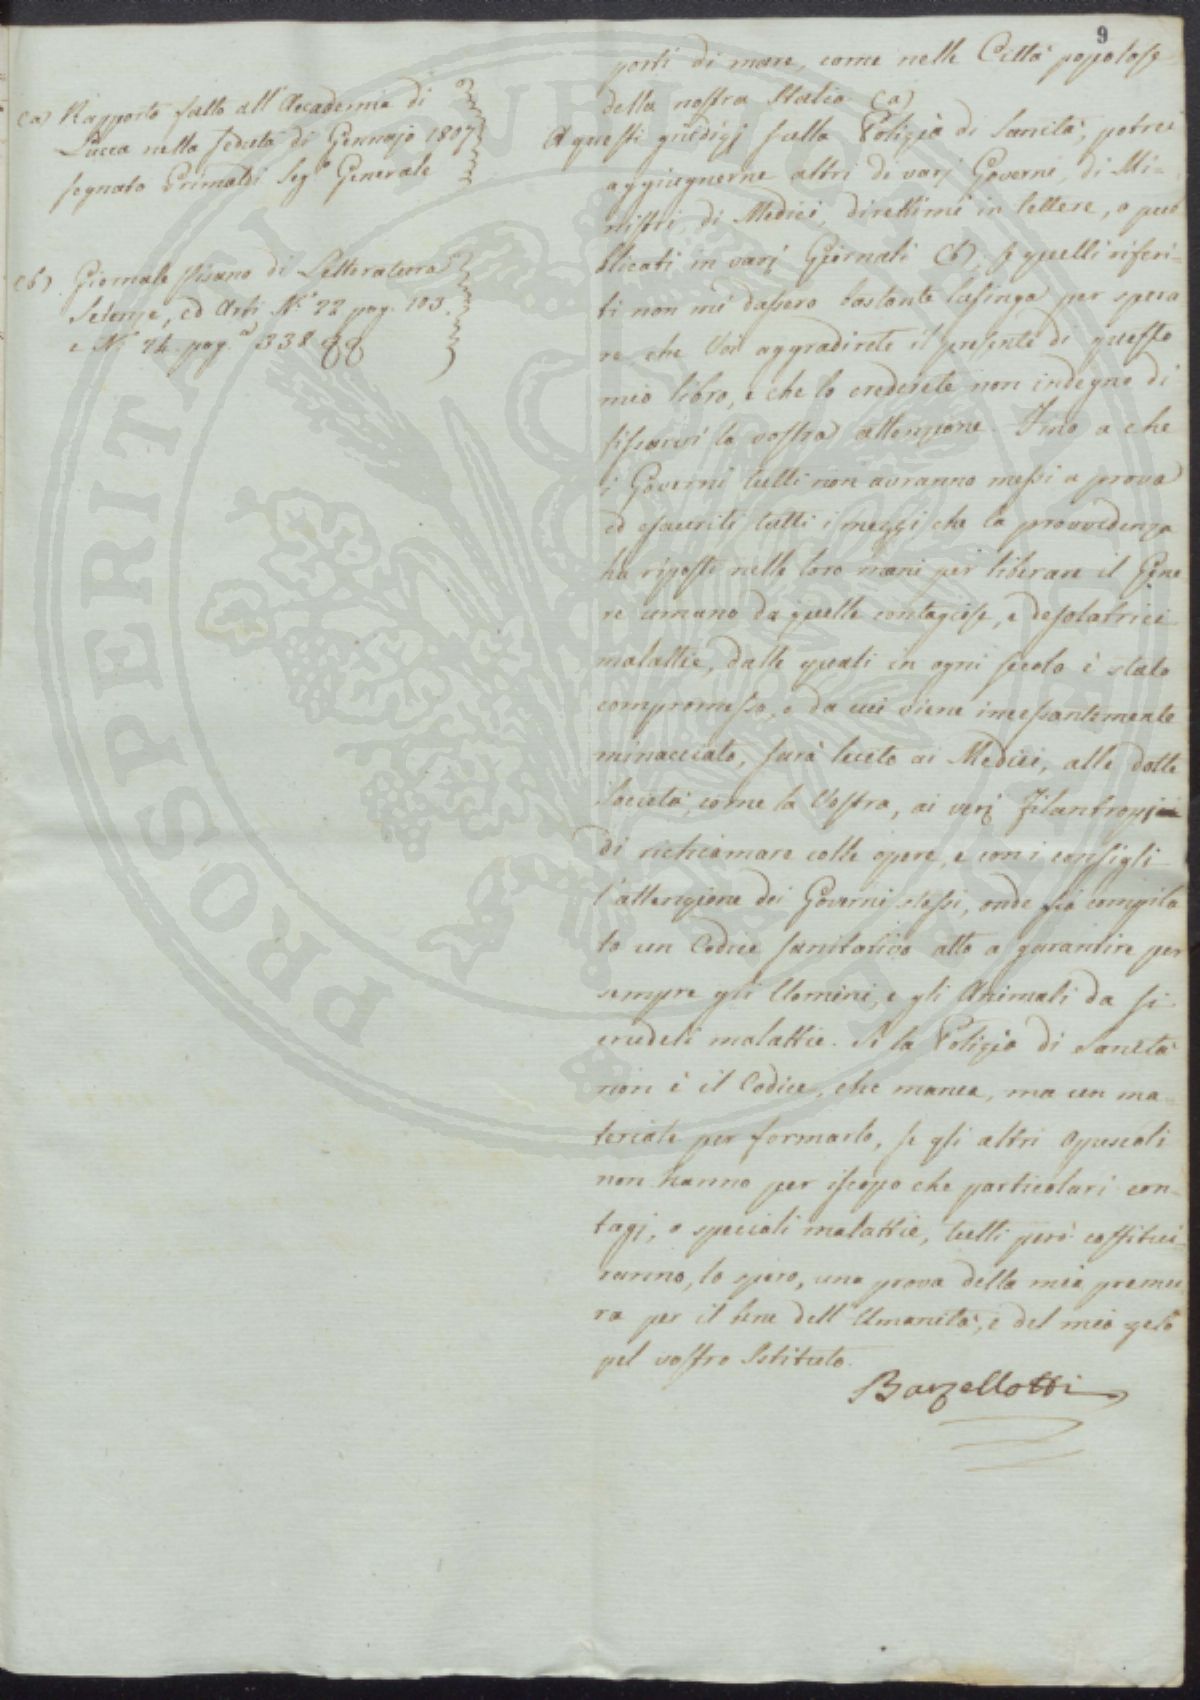 9
(a) Rapporto fatto all'Accademia di
Lucca nella seduta di Gennajo 1807
segnato Grimaldi Seg.º Generale
(b) Giornale Pisano di Letteratura
Scienze, ed Arti N.º 22 pag. 103.
e N. 24. pag.ª 338
porti di mare, come nelle Città popolose
della nostra Italia (a)
A questi giudizj sulla Polizia di Sanità, potrei
aggiugnerne altri di varj Governi, di Mi-
nistri, di Medici, direttimi in lettere, o pub
blicati in varj Giornali (b), se quelli riferi-
ti non mi dassero bastante lusinga per spera
re che Voi aggradirete il presente di questo
mio libro, e che lo crederete non indegno di
fissarvi la vostra attenzione. Fino a che
i Governi tutti non avranno messi a prova
ed esauriti tutti i mezzi che la provvidenza
ha riposti nelle loro mani per liberare il Gene
re umano da quelle contagiose, e desolatrici
malattie, dalle quali in ogni secolo è stato
compromesso, e da cui viene incessantemente
minacciato, sarà lecito ai Medici, alle dotte
Società, come la Vostra, ai verj Filantropj
di richiamare colle opere, e con i consigli
l'attenzione dei Governi stessi, onde sia compila
to un Codice sanitativo atto a garantire per
sempre gli Uomini, e gli Animali da si
crudeli malattie. Se la Polizia di Sanità
non è il Codice, che manca, ma un ma-
teriale per formarlo, se gli altri Opuscoli
non hanno per iscopo che particolari con-
tagj, o speciali malattie, tutti però costitui-
ranno, lo spero, una prova della mia premu
ra per il bene dell'Umanità, e del mio zelo
pel vostro Istituto.
Barzellotti
PROSPERITATI PUBLICAE